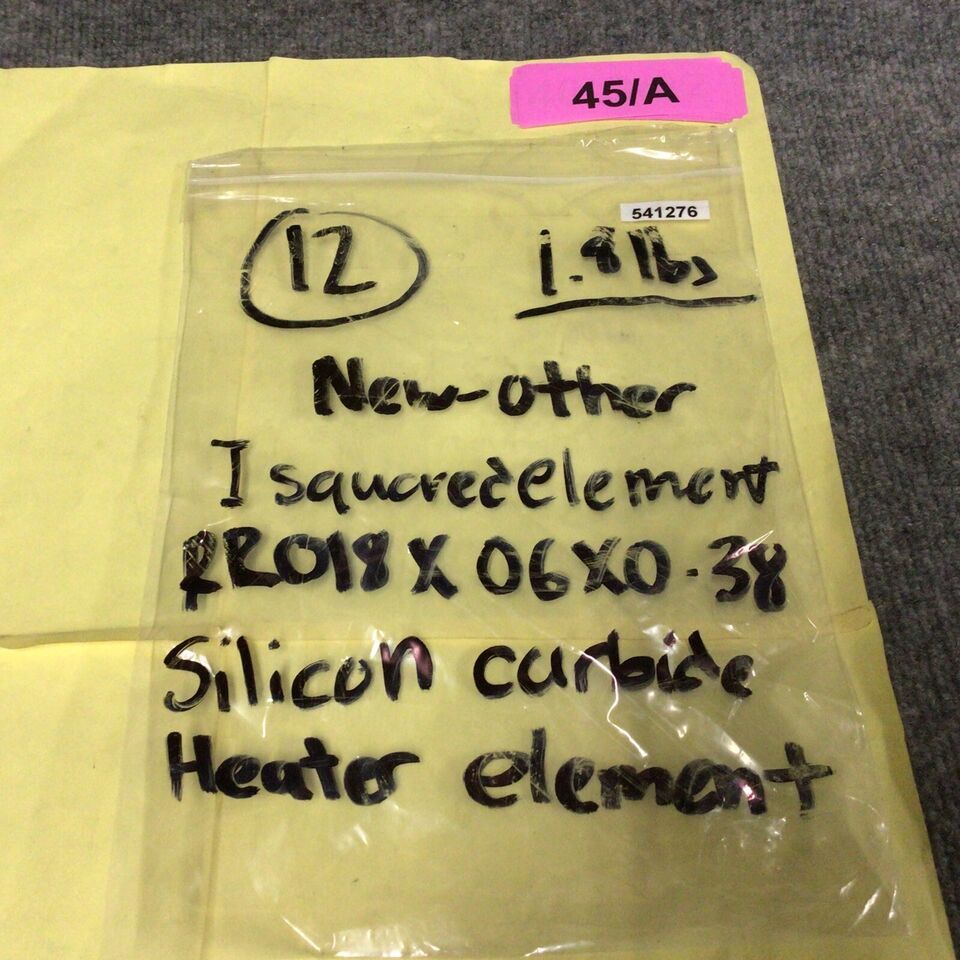 45/A
541276
12 1.8 lbs
New-other
I squared element
RR018X06X0.38
Silicon carbide
Heater element